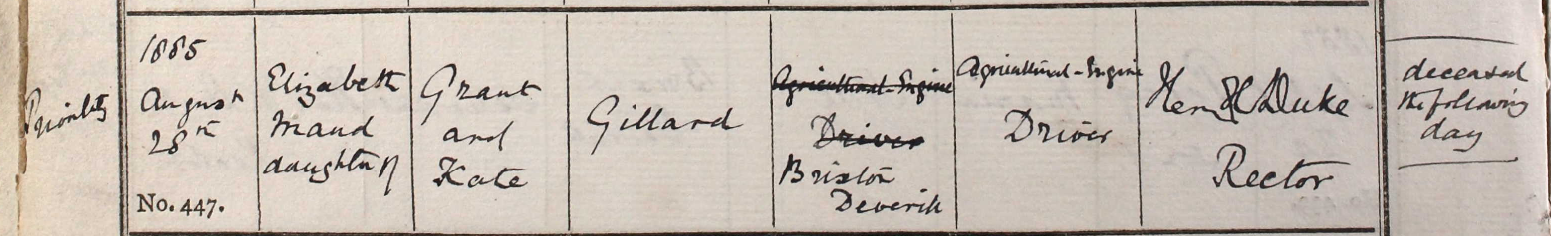 Privately
1885
August
28th
No. 447.
Elizabeth
Maud
daughter of
Grant
and
Kate
Gillard
Agricultural-Engine
Driver
Brixton
Deverill
Agricultural-Engine
Driver
Hen H Duke
Rector
deceased
the following
day